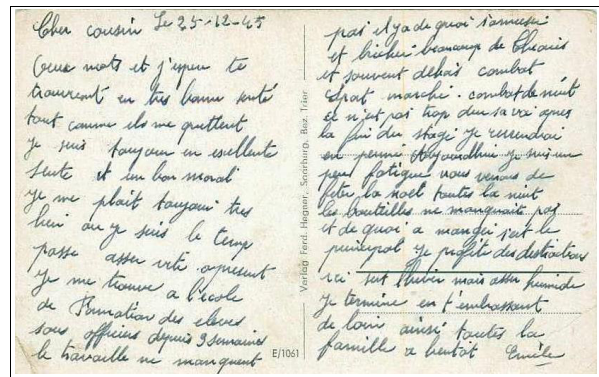 Cher cousin Le 25-12-45
Ceux mots et j'espere te
trouveront en tres bonne senté
tout comme ils me quittent
je suis toujour en esellente
sente et un bon moral
je me plait toujour tres
bien ou je suis le temp
passe asser vite apresent
je me trouve a l'ecole
de Formation des eleves
sous officiers depuis 3 semaines
le travaille ne manquent
pas il y a de quoi s'amuser
et beaucoup de
et souvent debais combat
marche. combat de nuit
ce n'est pas trop dur sa va apres
la fin du stage je reviendrai
en permie Aujourdhui je suis un
peu fatigue nous venons de
feter la noel toutes la nuit
les bouteilles ne manquait pas
et de quoi a mangé s'est le
principal je profite des distractions
ici sest l'hiver mais asser humide
je termine en t'embrassant
de loin ainsi toutes la
famille a bentot Emile
Verlag Ferd. Hegner, Saarburg, Bez. Trier
E/1061